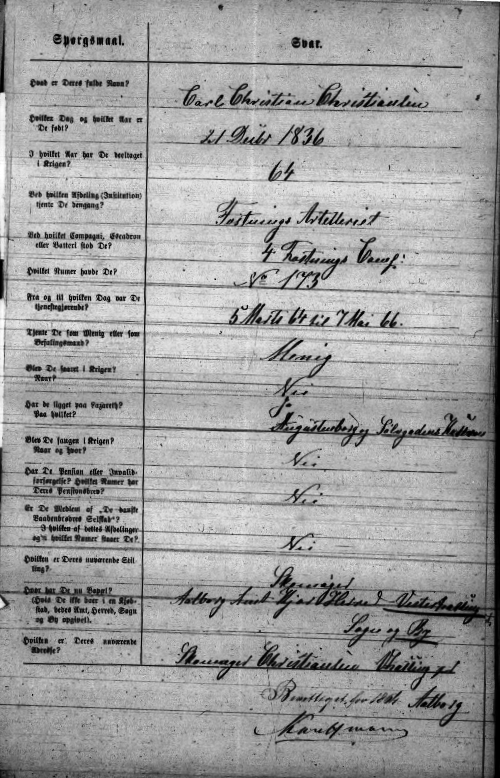 Spørgsmaal. Svar.
Hvad er Deres fulde Navn?
Carl Christian Christiansen
Hvilken Dag og hvilket Aar er
De født?
21 Decbr 1836
I hvilket Aar har De deeltaget
i Krigen?
64
Ved hvilken Afdeling (Institution)
tjente De dengang?
Fæstnings Artelleriet
Ved hvilket Compagni, Escadron
eller Batteri stod De?
4 Fæstnings Comp:
Hvilket Numer havde De?
No 173
Fra og til hvilken Dag var De
tjenestgjørende?
5 Marts 64 til 7 Mai 66.
Tjente De som Menig eller som
Befalingsmand?
Menig
Blev De saaret i Krigen?
Naar?
Nei
Har de ligget paa Lazareth?
Paa hvilket?
Ja
Augustenborg og Sølvgadens
Blev De fangen i Krigen?
Naar og hvor?
Nei
Har De Pension eller Invalid-
forsørgelse? Hvilket Numer har
Deres Pensionsbrev?
Nei
Er De Medlem af „De danske
Vaabenbrødres Selskab"?
I hvilken af dettes Afdelinger
og'n hvilket Numer staaer De?
Nei
Hvilken er Deres nuværende Stil-
ling?
Skomager
Hvor har De nu Bopæl?
(Hvis De ikke boer i en Kjøb-
stad, bedes Amt, Herred, Sogn
og By opgivet).
Aalborg Amt Herred
Sogn og By
Hvilken er Deres nuværende
Adresse?
Skomager Christiansen
for 1864 Aalborg